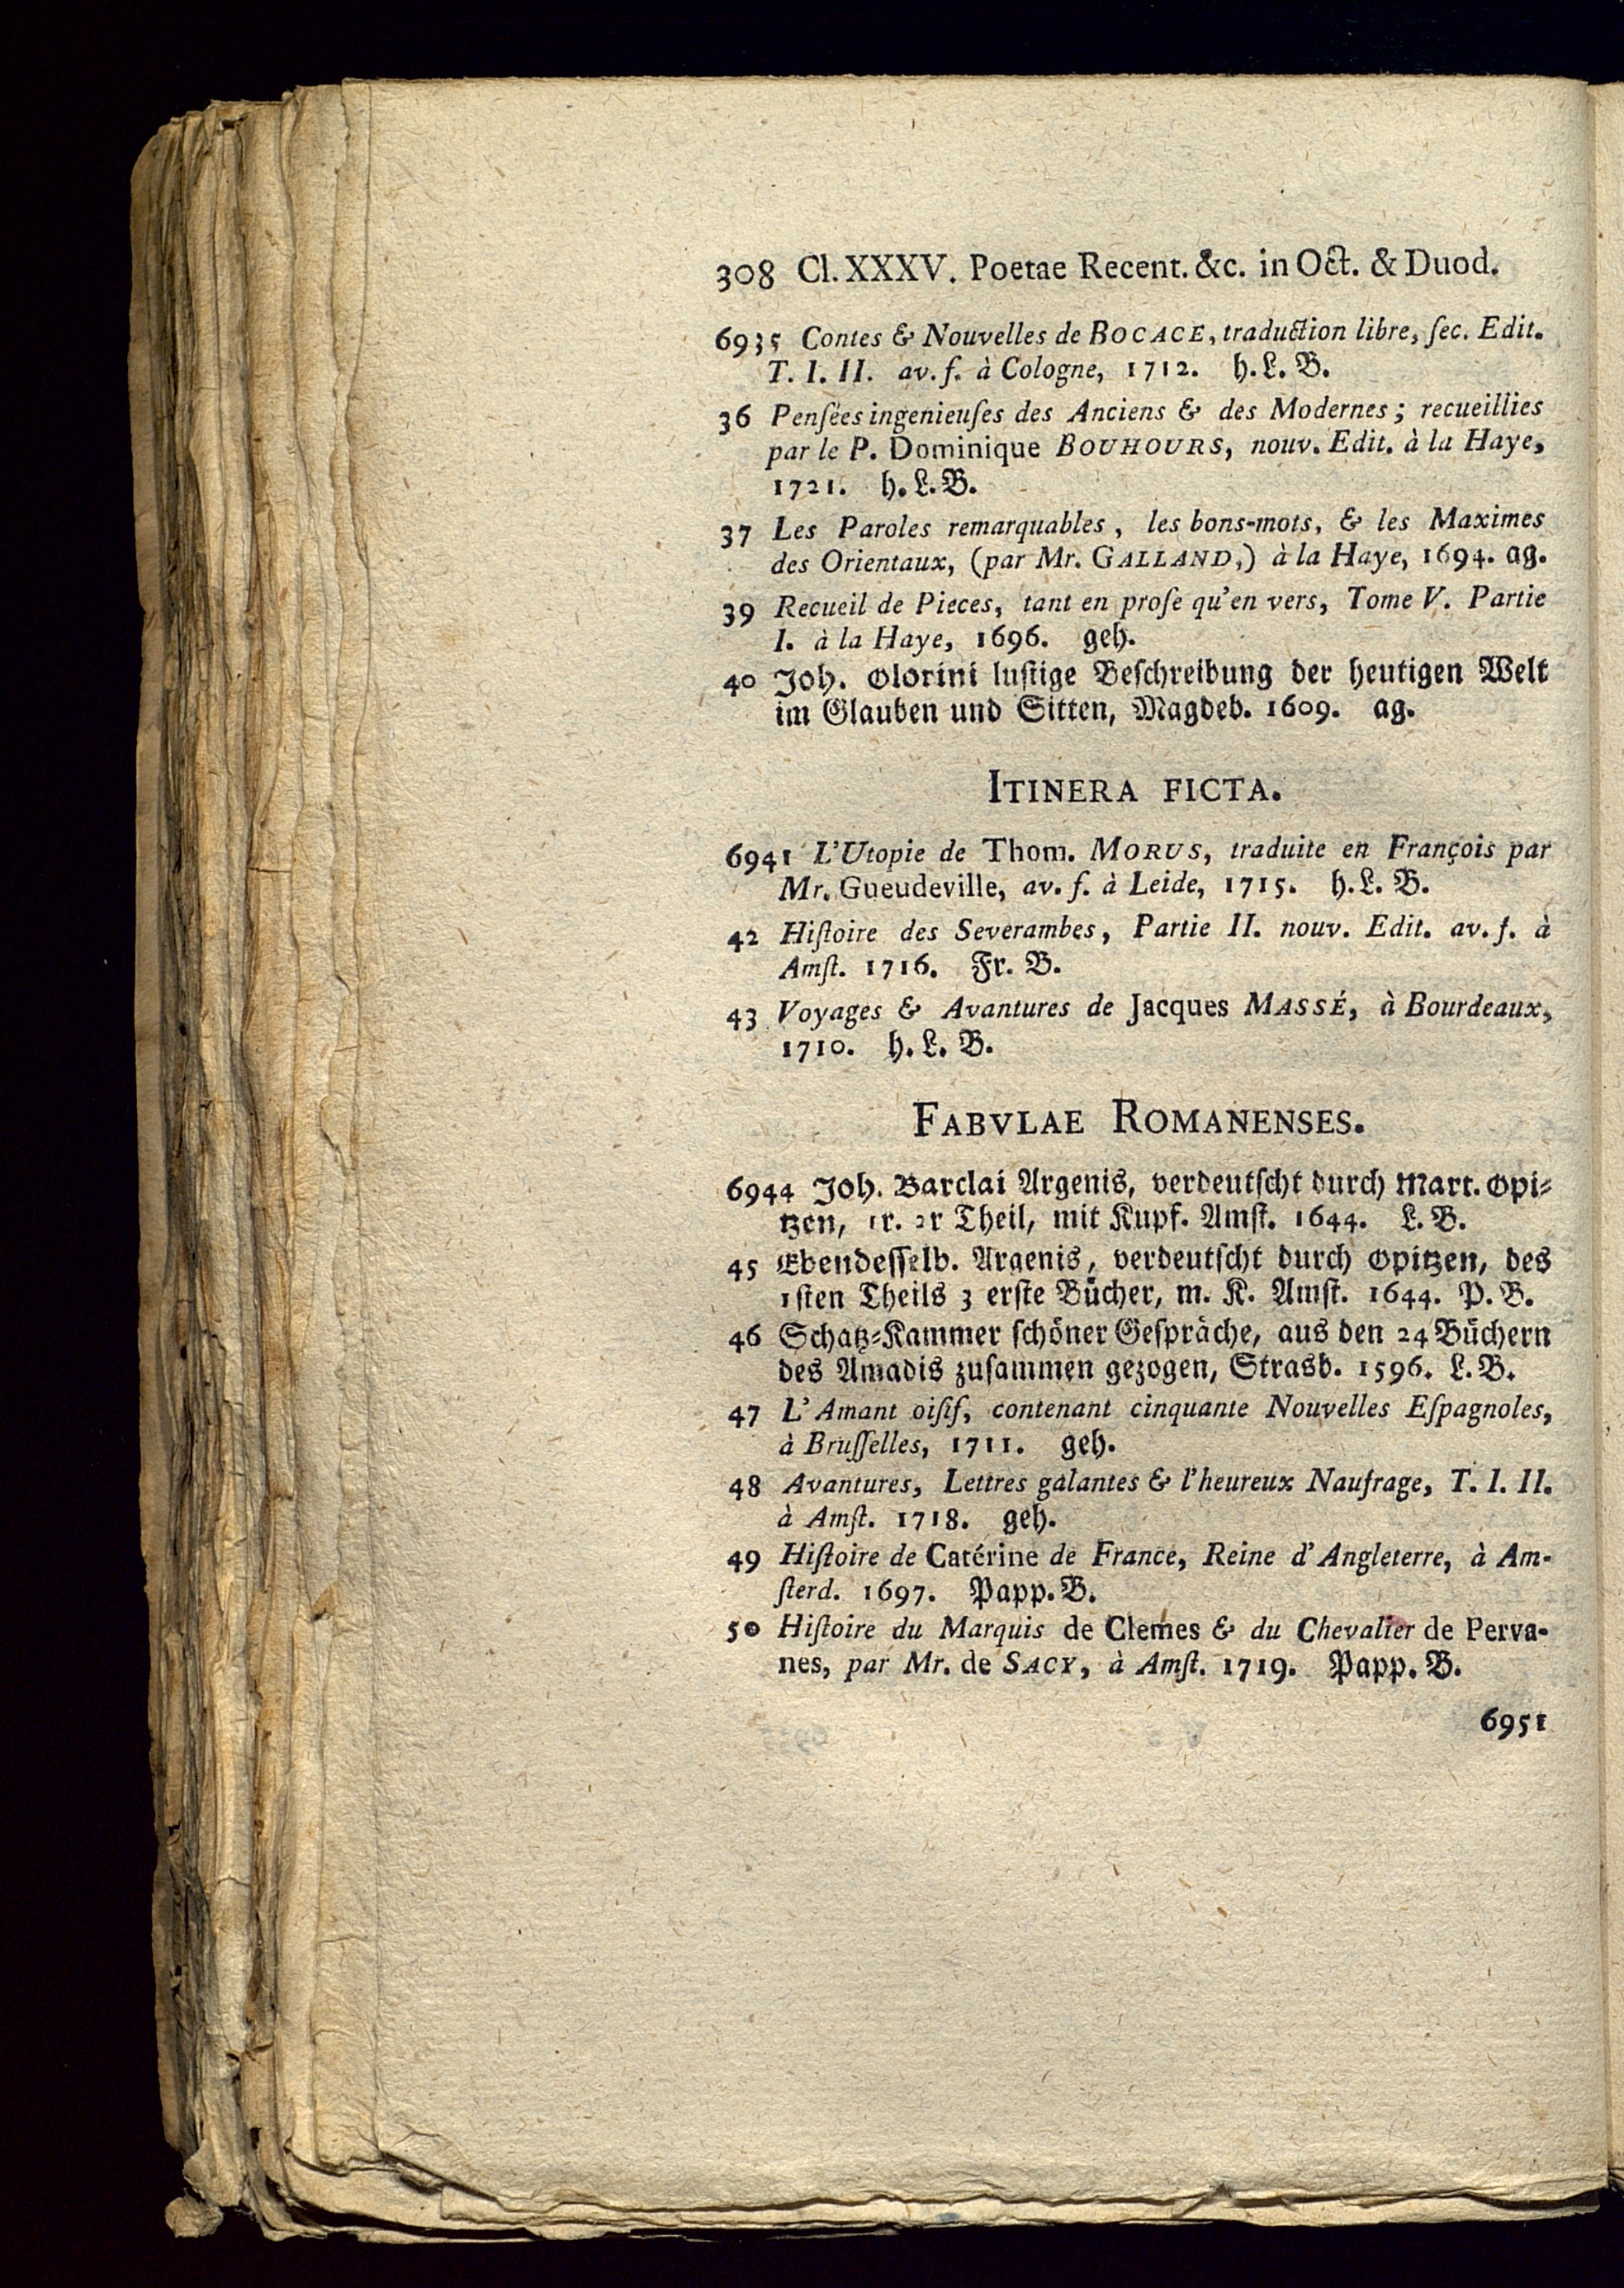 308 Cl. XXXV. Poetae Recent. &c. in Oct. & Duod.
6935 Contes & Nouvelles de BOCACE, traduction libre, ſec. Edit.
T. I. II. av. f. à Cologne, 1712. h. L. B.
36 Penſées ingenieuſes des Anciens & des Modernes; recueillies
par le P. Dominique BOUHOURS, nouv. Edit. à la Haye,
1721. h. L. B.
37 Les Paroles remarquables, les bons-mots, & les Maximes
des Orientaux, (par Mr. GALLAND,) à la Haye, 1694. ag.
39 Recueil de Pieces, tant en proſe qu'en vers, Tome V. Partie
I. à la Haye, 1696. geh.
40 Joh. Olorini luſtige Beſchreibung der heutigen Welt
im Glauben und Sitten, Magdeb. 1609. ag.
ITINERA FICTA.
6941 L'Utopie de Thom. MORUS, traduite en François par
Mr. Gueudeville, av. f. à Leide, 1715. h. L. B.
42 Hiſtoire des Severambes, Partie II. nouv. Edit. av. f. à
Amſt. 1716. Fr. B.
43 Voyages & Avantures de Jacques MASSÉ, à Bourdeaux,
1710. h. L. B.
FABVLAE ROMANENSES.
6944 Joh. Barclai Argenis, verdeutſcht durch Mart. Opi-
tzen, 1r. 2r Theil, mit Kupf. Amſt. 1644. L. B.
45 Ebendeſſelb. Argenis, verdeutſcht durch Opitzen, des
1ſten Theils 3 erſte Bücher, m. K. Amſt. 1644. P. B.
46 Schatz-Kammer ſchöner Geſpräche, aus den 24 Büchern
des Amadis zuſammen gezogen, Strasb. 1596. L. B.
47 L'Amant oiſif, contenant cinquante Nouvelles Eſpagnoles,
à Bruſſelles, 1711. geh.
48 Avantures, Lettres galantes & l'heureux Naufrage, T. I. II.
à Amſt. 1718. geh.
49 Hiſtoire de Catérine de France, Reine d'Angleterre, à Am-
ſterd. 1697. Papp. B.
50 Hiſtoire du Marquis de Clemes & du Chevalier de Perva-
nes, par Mr. de SACY, à Amſt. 1719. Papp. B.
6951